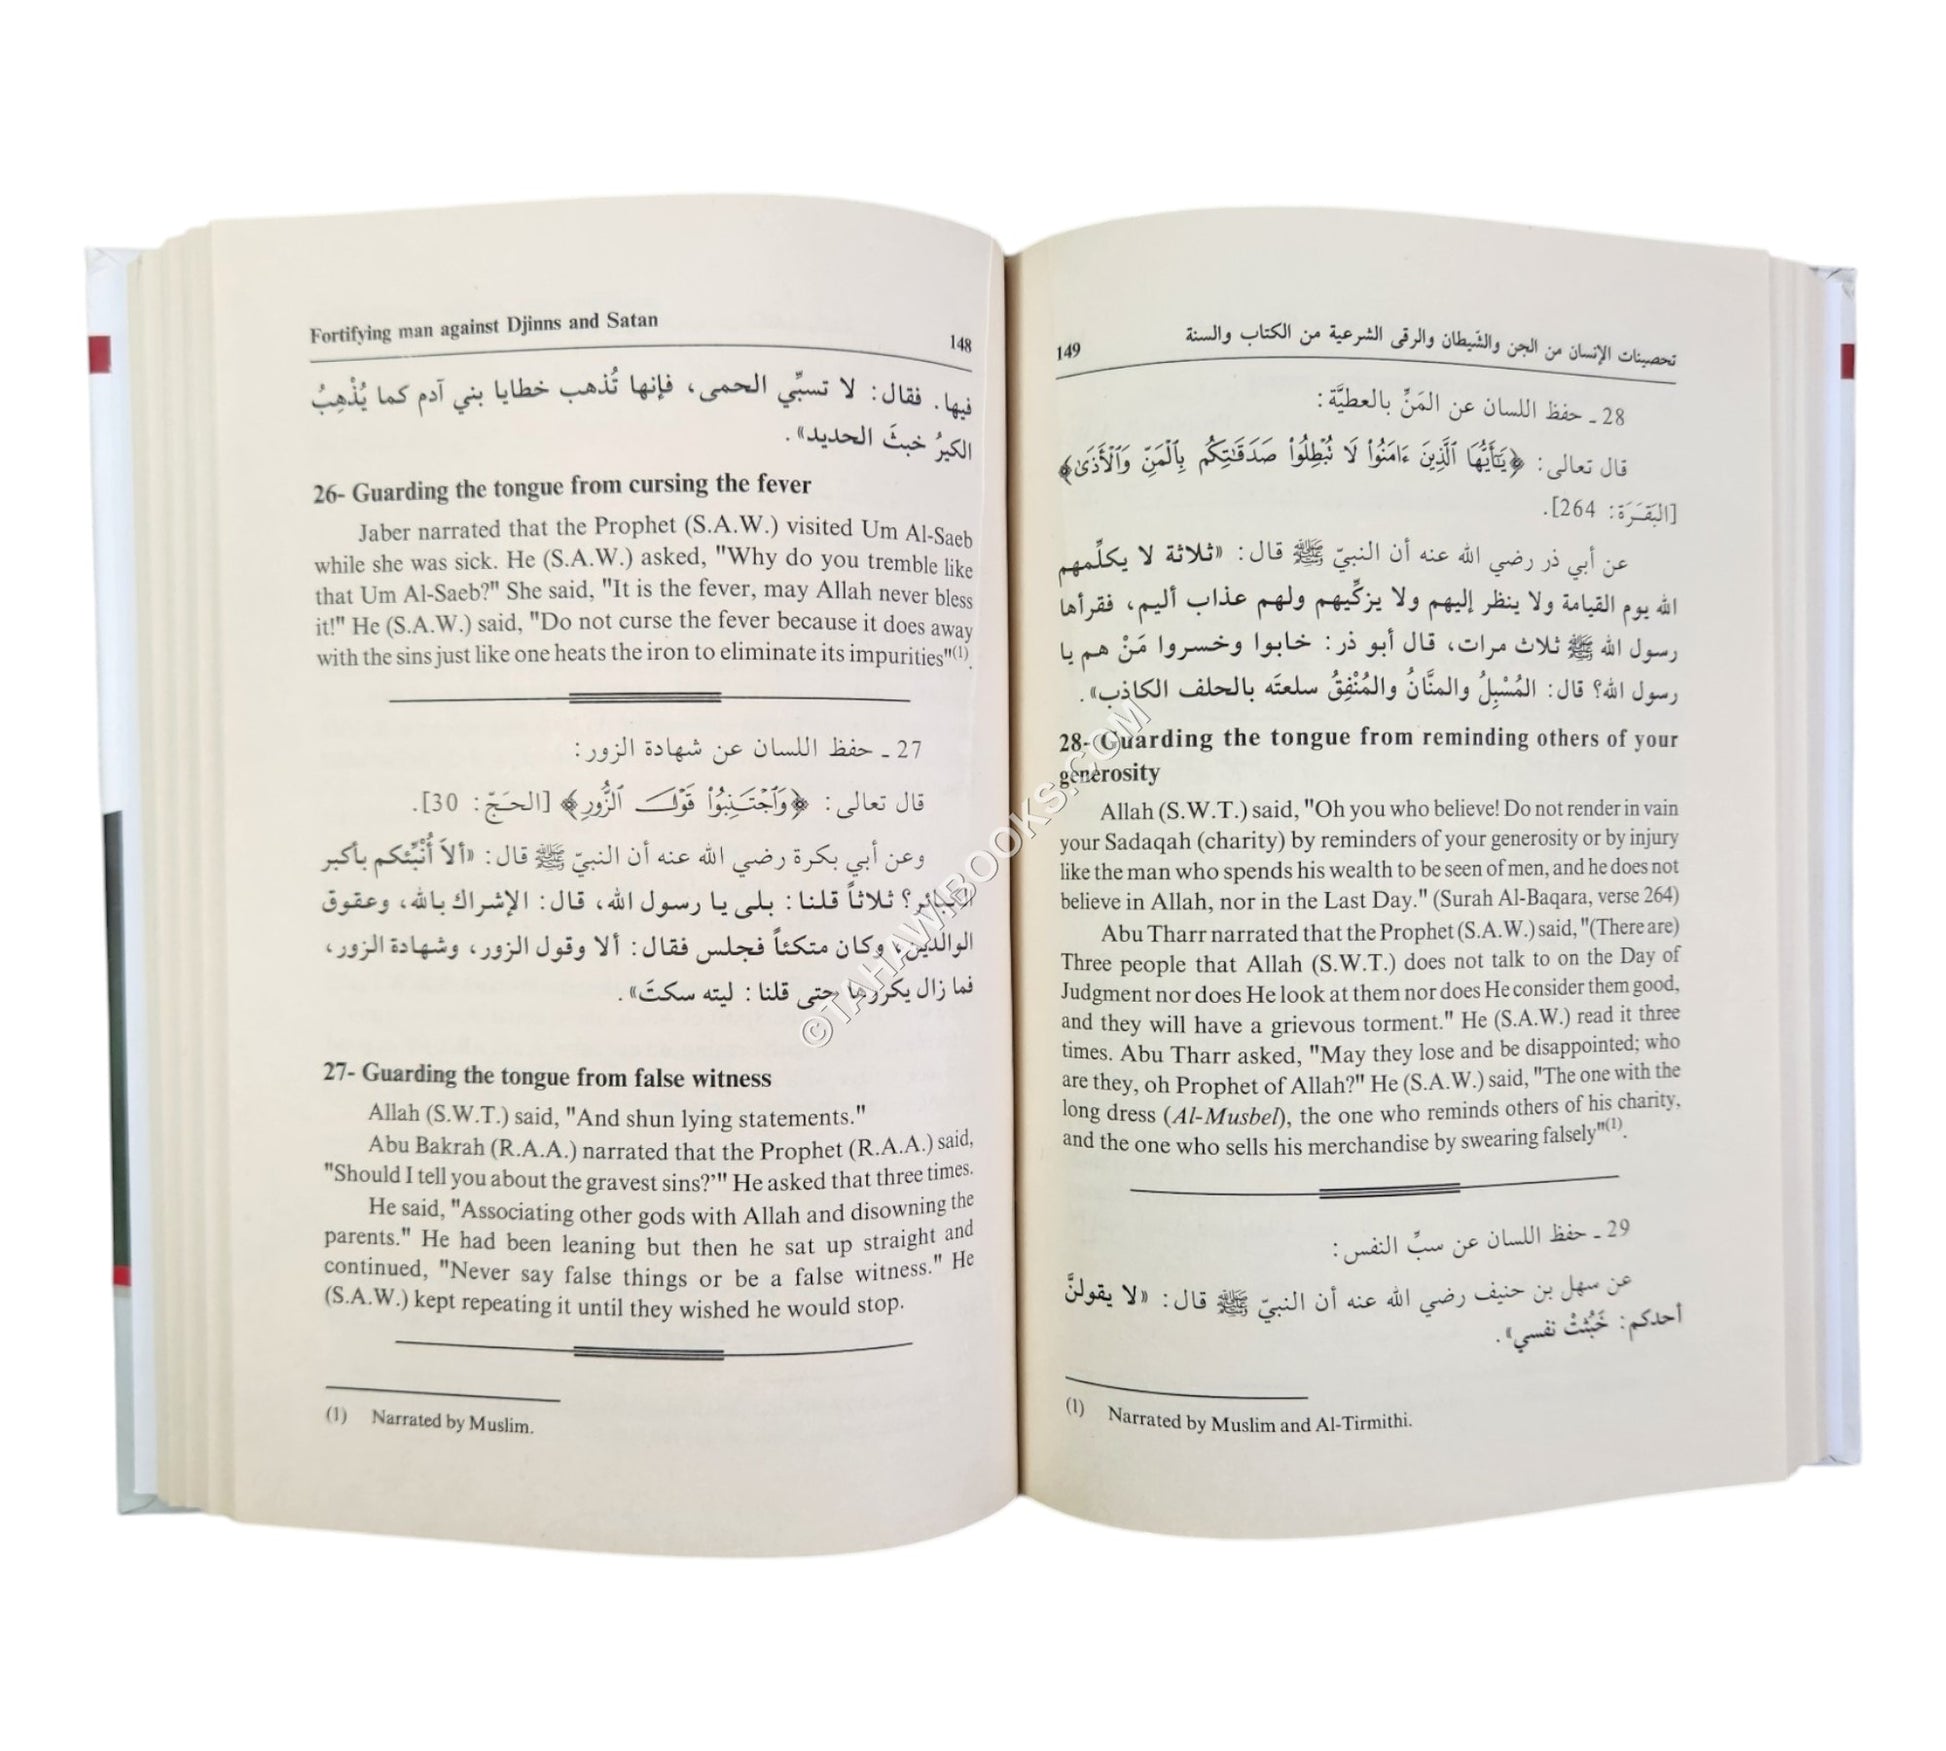 Fortifying man against Djinns and Satan
148
فيها. فقال: لا تسبِّي الحمى، فإنها تُذهب خطايا بني آدم كما يُذْهِبُ
الكيرُ خبثَ الحديد».
26- Guarding the tongue from cursing the fever
Jaber narrated that the Prophet (S.A.W.) visited Um Al-Saeb
while she was sick. He (S.A.W.) asked, "Why do you tremble like
that Um Al-Saeb?" She said, "It is the fever, may Allah never bless
it!" He (S.A.W.) said, "Do not curse the fever because it does away
with the sins just like one heats the iron to eliminate its impurities"(1).
27 ـ حفظ اللسان عن شهادة الزور:
قال تعالى: ﴿وَٱجْتَنِبُوا۟ قَوْلَ ٱلزُّورِ﴾ [الحَجّ: 30].
وعن أبي بكرة رضي الله عنه أن النبيّ ﷺ قال: «ألاَ أُنَبِّئكم بأكبر
الكبائر؟ ثلاثاً قلنا: بلى يا رسول الله، قال: الإشراك بالله، وعقوق
الوالدين، وكان متكئاً فجلس فقال: ألا وقول الزور، وشهادة الزور،
فما زال يكررها حتى قلنا: ليته سكتَ».
27- Guarding the tongue from false witness
Allah (S.W.T.) said, "And shun lying statements."
Abu Bakrah (R.A.A.) narrated that the Prophet (R.A.A.) said,
"Should I tell you about the gravest sins?'" He asked that three times.
He said, "Associating other gods with Allah and disowning the
parents." He had been leaning but then he sat up straight and
continued, "Never say false things or be a false witness." He
(S.A.W.) kept repeating it until they wished he would stop.
(1) Narrated by Muslim.
149
تحصينات الإنسان من الجن والشَيطان والرقى الشرعية من الكتاب والسنة
28 ـ حفظ اللسان عن المَنِّ بالعطيَّة:
قال تعالى: ﴿يَٰٓأَيُّهَا ٱلَّذِينَ ءَامَنُوا۟ لَا تُبْطِلُوا۟ صَدَقَٰتِكُم بِٱلْمَنِّ وَٱلْأَذَىٰ﴾
[البَقَرَة: 264].
عن أبي ذر رضي الله عنه أن النبيّ ﷺ قال: «ثلاثة لا يكلِّمهم
الله يوم القيامة ولا ينظر إليهم ولا يزكِّيهم ولهم عذاب أليم، فقرأها
رسول الله ﷺ ثلاث مرات، قال أبو ذر: خابوا وخسروا مَنْ هم يا
رسول الله؟ قال: المُسْبِلُ والمنَّانُ والمُنْفِقُ سلعتَه بالحلف الكاذب».
28- Guarding the tongue from reminding others of your
generosity
Allah (S.W.T.) said, "Oh you who believe! Do not render in vain
your Sadaqah (charity) by reminders of your generosity or by injury
like the man who spends his wealth to be seen of men, and he does not
believe in Allah, nor in the Last Day." (Surah Al-Baqara, verse 264)
Abu Tharr narrated that the Prophet (S.A.W.) said, "(There are)
Three people that Allah (S.W.T.) does not talk to on the Day of
Judgment nor does He look at them nor does He consider them good,
and they will have a grievous torment." He (S.A.W.) read it three
times. Abu Tharr asked, "May they lose and be disappointed; who
are they, oh Prophet of Allah?" He (S.A.W.) said, "The one with the
long dress (Al-Musbel), the one who reminds others of his charity,
and the one who sells his merchandise by swearing falsely"(1).
29 ـ حفظ اللسان عن سبِّ النفس:
عن سهل بن حنيف رضي الله عنه أن النبيّ ﷺ قال: «لا يقولنَّ
أحدكم: خَبُثتْ نفسي».
(1) Narrated by Muslim and Al-Tirmithi.
©TAHAWIBOOKS.COM